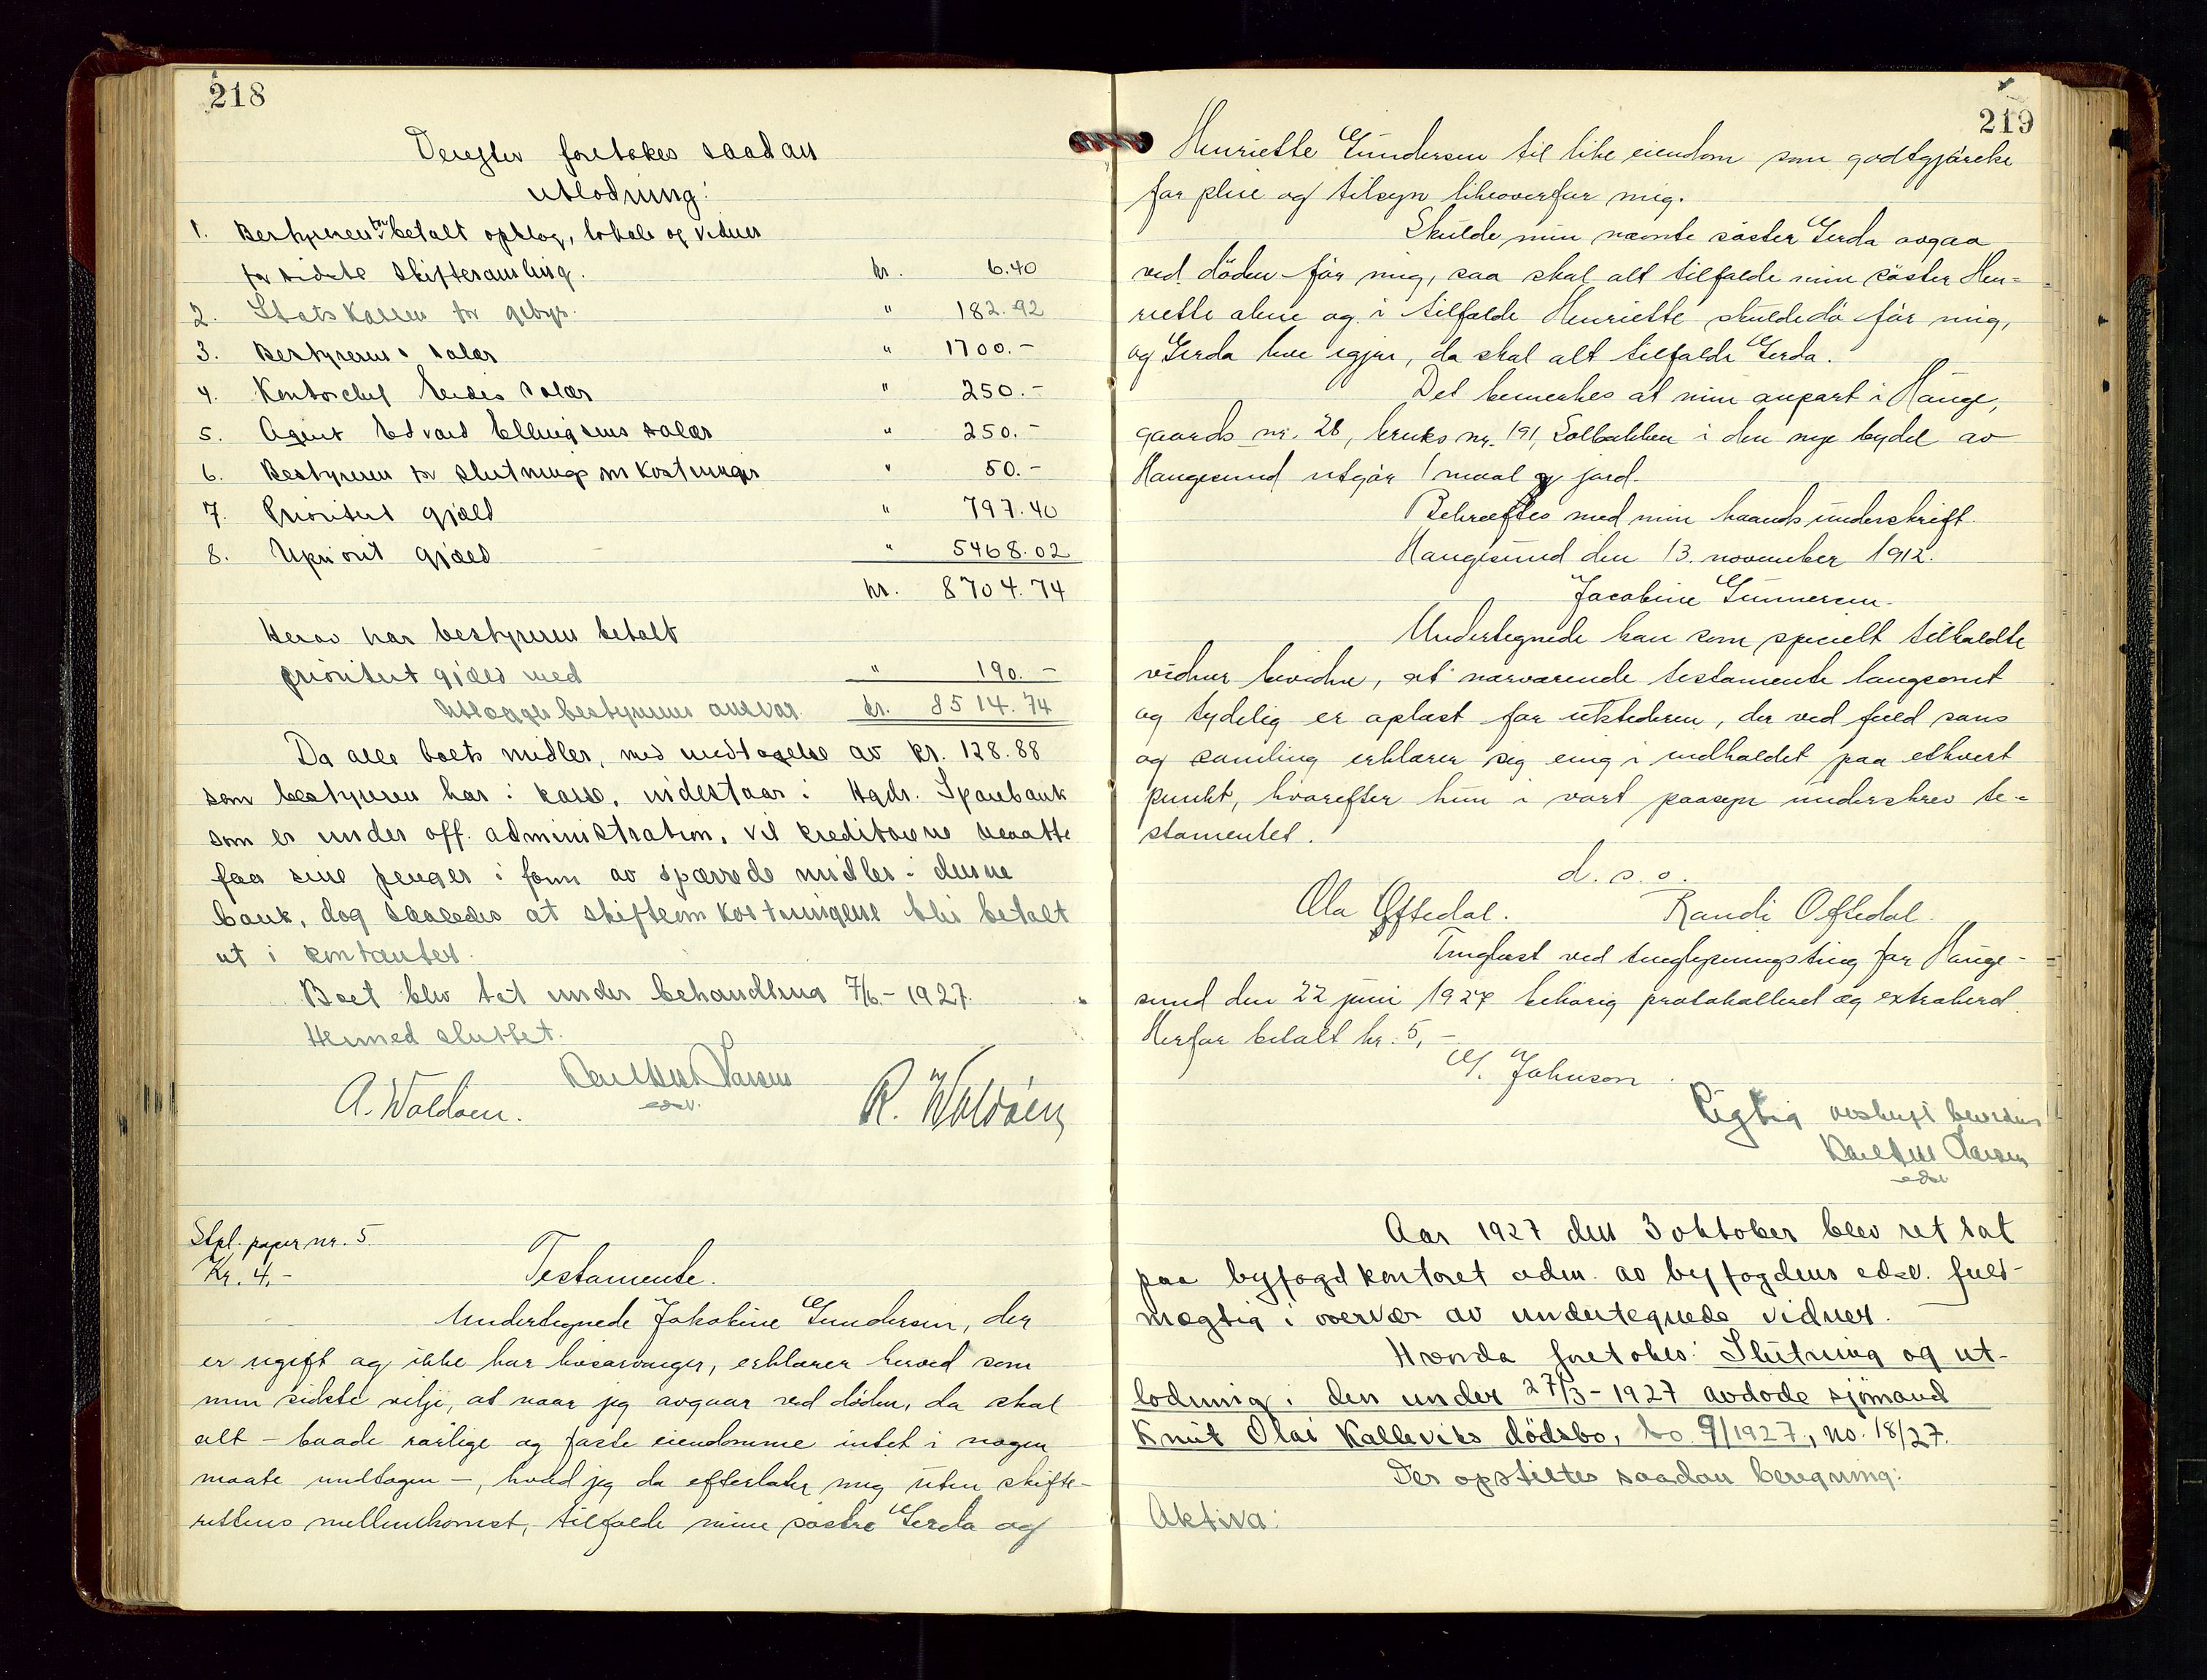 218
Derefter foretokes saadan
utlodning:
1. Bestyreren for betalt opslag, lokale og vidner
for sidste skiftesamling. kr. 6.40
2. Statskassen for gebyr. " 182.92
3. Bestyrerens salær " 1700.-
4. Kontorchef salær " 250.-
5. Agent Edvard Ellingsens salær " 250.-
6. Bestyreren for slutningsomkostninger " 50.-
7. Prioritert gjæld " 797.40
8. Upriorit gjæld " 5468.02
kr. 8704.74
Herav har bestyreren betalt
prioritert gjæld med " 190.-
Utlægges bestyrerens ansvar. kr. 8514.74
Da alle boets midler, med undtagelse av kr. 128.88
som bestyreren har i kasse, indestaar i Hgds. Sparebank
som er under off. administration, vil kreditorerne maatte
faa sine penger i form av sperrede midler i denne
bank, dog saaledes at skifteomkostningene blir betalt
ut i kontanter.
Boet blev tat under behandling 7/6-1927.
Hermed sluttet.
A. Waldsen. Larsen R. Waldsen
edsv.
Stpl. papir nr. 5.
Kr. 4,-
Testamente.
Undertegnede Jakobine Gundersen, der
er ugift og ikke har livsarvinger, erklærer herved som
min sidste vilje, at naar jeg avgaar ved døden, da skal
alt – baade rørlige og faste eiendomme intet i nogen
maate undtagen –, hvad jeg da efterlater mig uten skifte-
rettens mellemkomst, tilfalde mine søstre Gerda og
219
Henriette Gundersen til like eiendom som godtgjørelse
for pleie og tilsyn likeoverfor mig.
Skulde min nævnte søster Gerda avgaa
ved døden før mig, saa skal alt tilfalde min søster Hen-
riette alene og i tilfælde Henriette skulde dø før mig,
og Gerda leve igjen, da skal alt tilfalde Gerda.
Det bemerkes at min anpart i Hauge,
gaards nr. 28, bruks nr. 191, Solbakken i den nye bydel av
Haugesund utgjør 1 maal jord.
Bekræftes med min haands underskrift.
Haugesund den 13. november 1912.
Jacobine Gunnersen.
Undertegnede kan som specielt tilkaldte
vidner bevidne, at nærværende testamente langsomt
og tydelig er oplæst for utstederen, der ved fuld sans
og samling erklærer sig enig i indholdet paa ethvert
punkt, hvorefter hun i vort paasyn underskrev te-
stamentet.
d. s. o.
Ola Oftedal. Randi Oftedal.
Tinglæst ved tinglysningsting for Hauge-
sund den 22 juni 1927 behørig protokolleret og extraherd.
Herfor betalt kr. 5,-
G. Johnson.
Rigtig avskrift bevidnes
Larsen
edsv
Aar 1927 den 3 oktober blev ret sat
paa byfogdkontoret adm. av byfogdens edsv. fuld-
mægtig i overvær av undertegnede vidner.
Hvorda foretokes: Slutning og ut-
lodning i den under 27/3-1927 avdøde sjømand
Knut Olai Kalleviks dødsbo, bo 9/1927, no. 18/27.
Der opstilltes saadan beregning:
Aktiva: